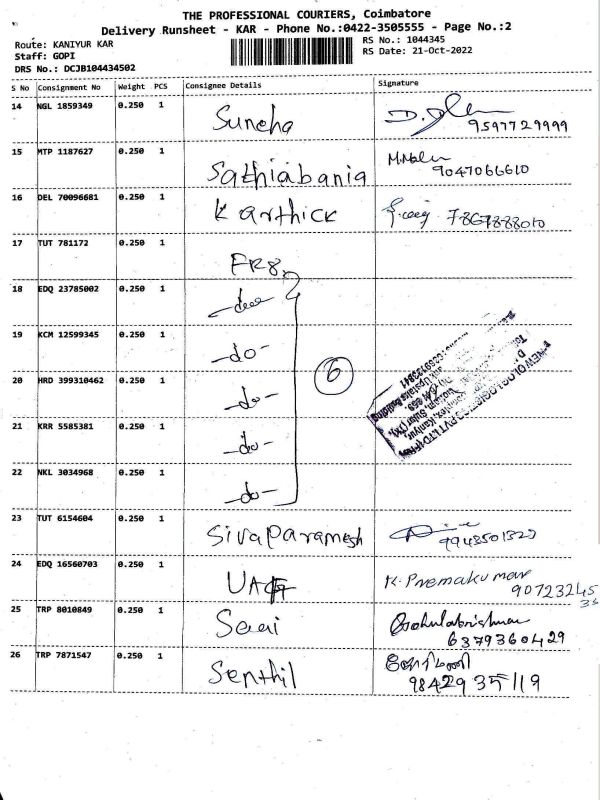 THE PROFESSIONAL COURIERS, Coimbatore
Delivery Runsheet - KAR - Phone No.:0422-3505555 - Page No.:2
Route: KANIYUR KAR RS No.: 1044345
Staff: GOPI RS Date: 21-Oct-2022
DRS No.: DCJB104434502
S No Consignment No Weight PCS Consignee Details Signature
14 NGL 1859349 0.250 1 Suneha
9597729999
15 MTP 1187627 0.250 1 Sathiabania
9047066610
16 DEL 70096681 0.250 1 Karthick 7867888010
17 TUT 781172 0.250 1 FR8
18 EDQ 23785002 0.250 1
19 KCM 12599345 0.250 1 -do-
20 HRD 399310462 0.250 1 -do-
6
21 KRR 5585381 0.250 1 -do-
22 NKL 3034968 0.250 1 -do-
23 TUT 6154604 0.250 1 SivaParamesh
24 EDQ 16560703 0.250 1 K. Premakumar
90723245
35
25 TRP 8010849 0.250 1 Gokulakrishnan
6379360429
26 TRP 7871547 0.250 1 Senthil
9842935119